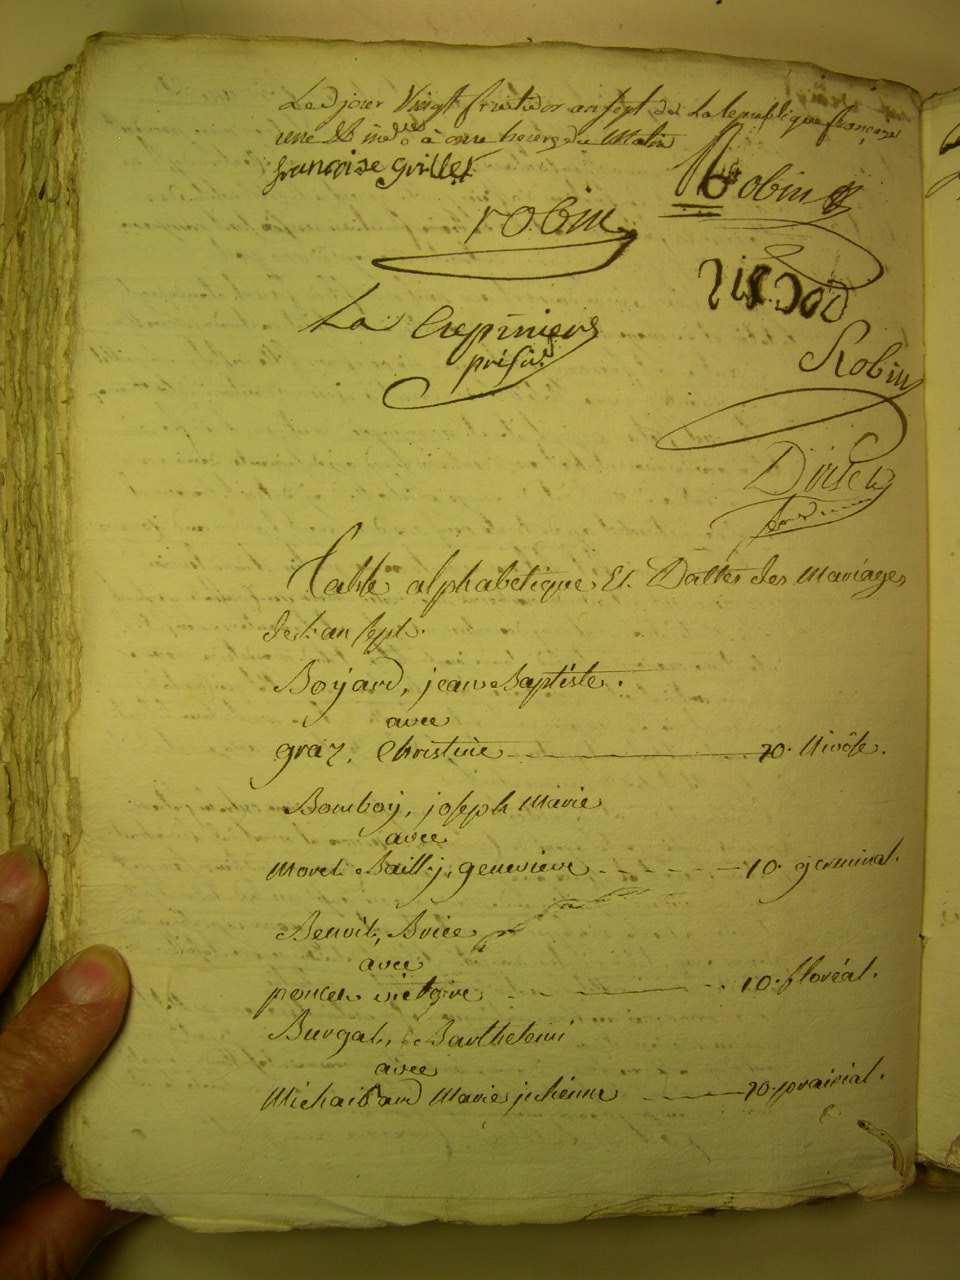 Led. jour Vingt fructidor an sept de La Republique française
une & indble à onze heures du Matin
françoise grillet
Robin
robin
ricsod
La Crepiniere
présid.
Robin
Table alphabetique Et Dattes des Mariages
de L'an sept.
Boyard, jean Baptiste.
avec
graz, Christine 20. Nivôse.
Bomboy, joseph Marie
avec
Morel Bailly, genevieve 10. germinal.
Benoit, Brice
avec
poncet victoire 10. floréal.
Burgat, Barthelemi
avec
Michaid and Marie julienne 20. prairial.